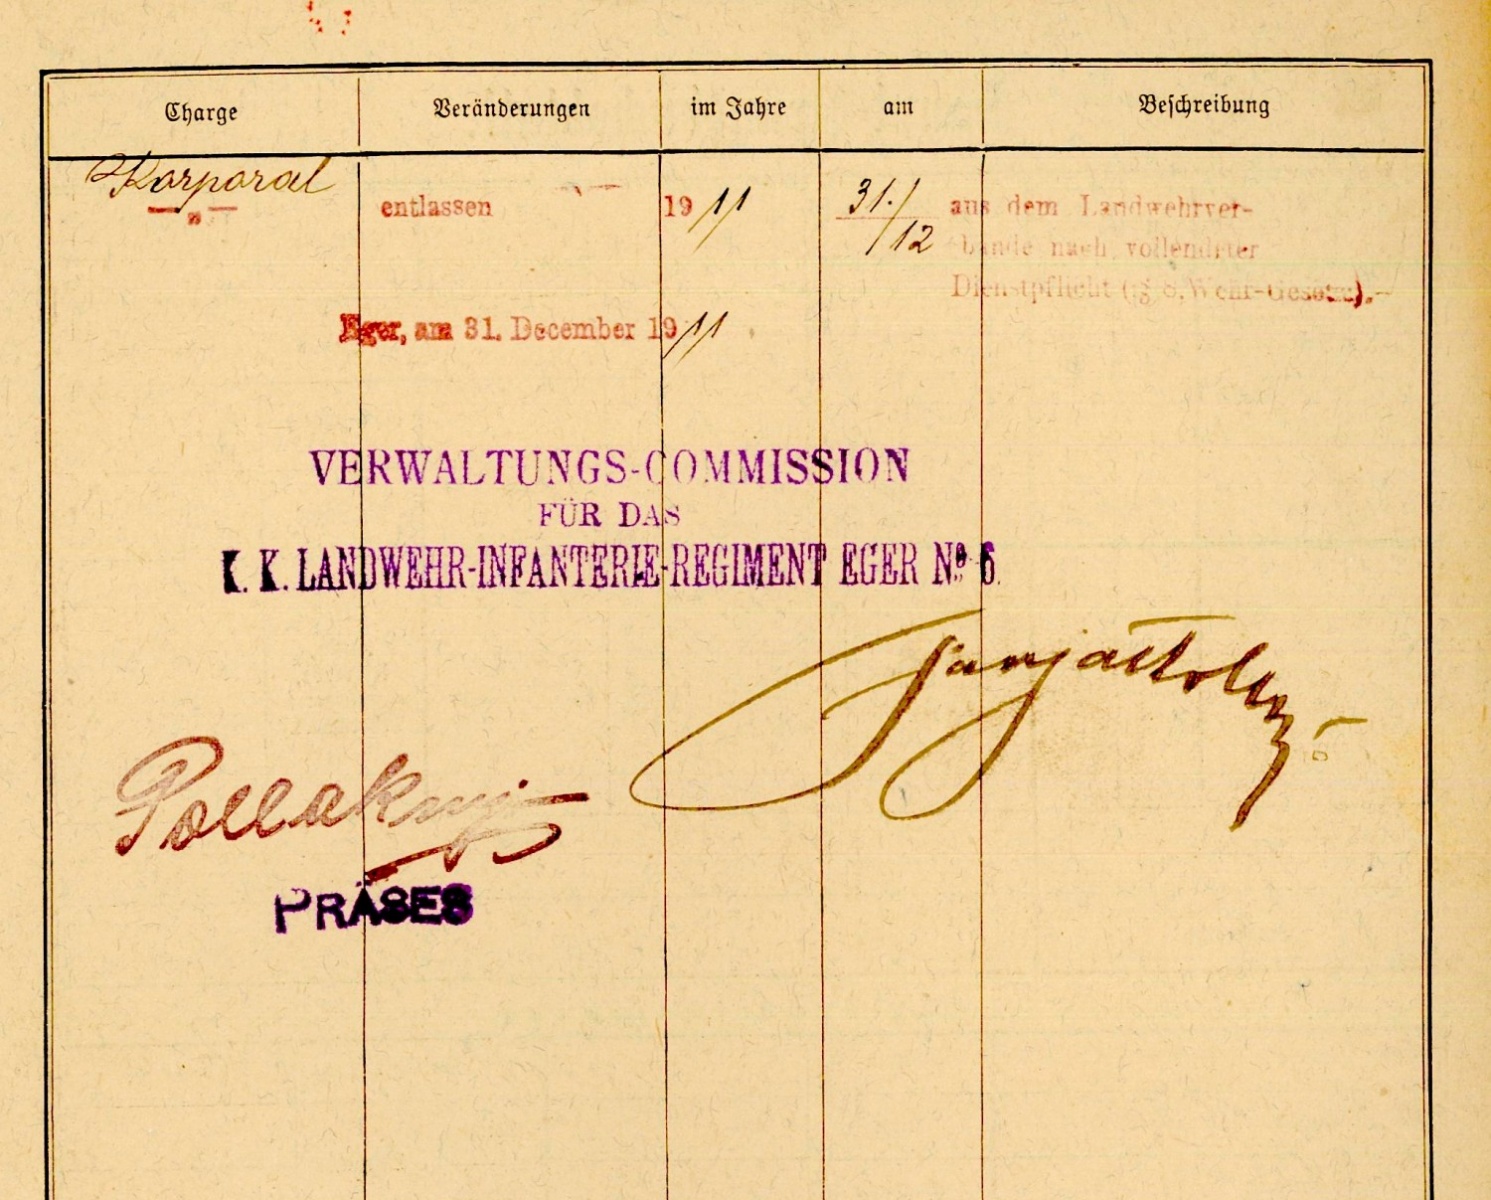 Charge Veränderungen im Jahre am Beschreibung
Korporal
„ entlassen 1911 31./12 aus dem Landwehrver-
bande nach vollendeter
Dienstpflicht (§ 8, Wehr-Gesetz).
Eger, am 31. December 1911
VERWALTUNGS-COMMISSION
FÜR DAS
K. K. LANDWEHR-INFANTERIE-REGIMENT EGER No. 6.
Pollak
PRÄSES